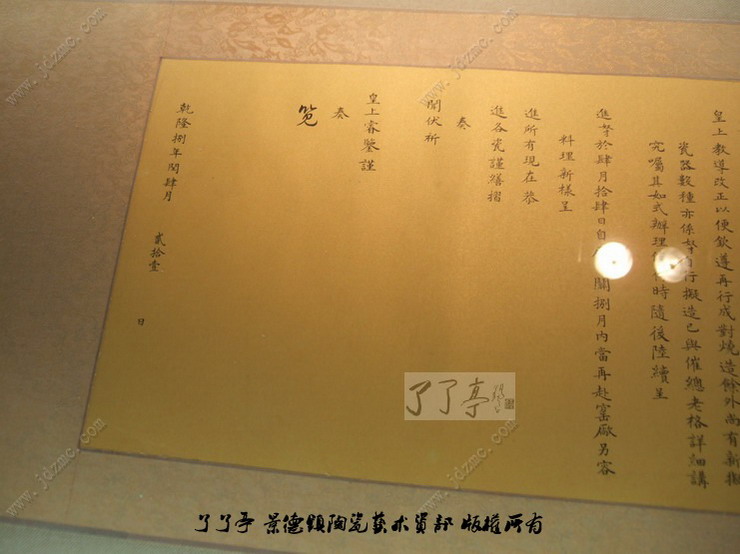 皇上教導改正以便欽遵再行成對燒造餘外尚有新擬
瓷器數種亦係奴行擬造已與催總老格詳細講
究囑其如式辦理時隨後陸續呈
進奴於肆月拾肆日自關捌月內當再赴窰廠另容
料理新樣呈
進所有現在恭
進各瓷謹繕摺
奏
聞伏祈
皇上睿鑒謹
奏
覽
乾隆捌年閏肆月 貳拾壹 日
了了亭
了了亭 景德镇陶瓷艺术资部 版權所有
www.jdzmc.com
www.jdzmc.com
www.jdzmc.com
www.jdzmc.com
www.jdzmc.com